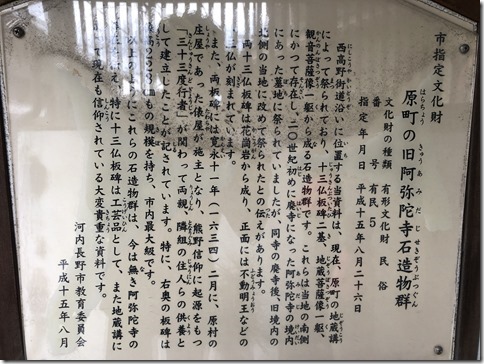 市指定文化財
原町の旧阿弥陀寺石造物群
文化財の種類 有形文化財 民俗
番号 有民5
指定年月日 平成十五年八月二十六日
西高野街道沿いに位置する当資料は、現在、原町の地蔵講
によって祭られており、十三仏板碑二基、地蔵菩薩像一躯、
観音菩薩像一躯から成る石造物群です。これらは当地の南側
にかつて存在し、二〇世紀初めに廃寺になった阿弥陀寺の境内
にあった墓地に祭られていましたが、同寺の廃寺後、旧境内の
北側の当地に改めて祭られたとの伝えがあります。
両十三仏板碑は花崗岩から成り、正面には不動明王などの
三仏が刻まれています。
また、両板碑には寛永十一(一六三四)二月に、原村の
庄屋であった俵屋が施主となり、熊野信仰に起源をもつ
「三十三度行者」が関わって両親、隣組の住人らの供養と
して建立したことが記されています。特に、右奥の板碑は
もの規模を持ち、市内最大級です。
以上のようにこれらの石造物群は、今は無き阿弥陀寺の
特に十三仏板碑は工芸品として、また地蔵講に
現在も信仰されている大変貴重な資料です。
河内長野市教育委員会
平成十五年八月